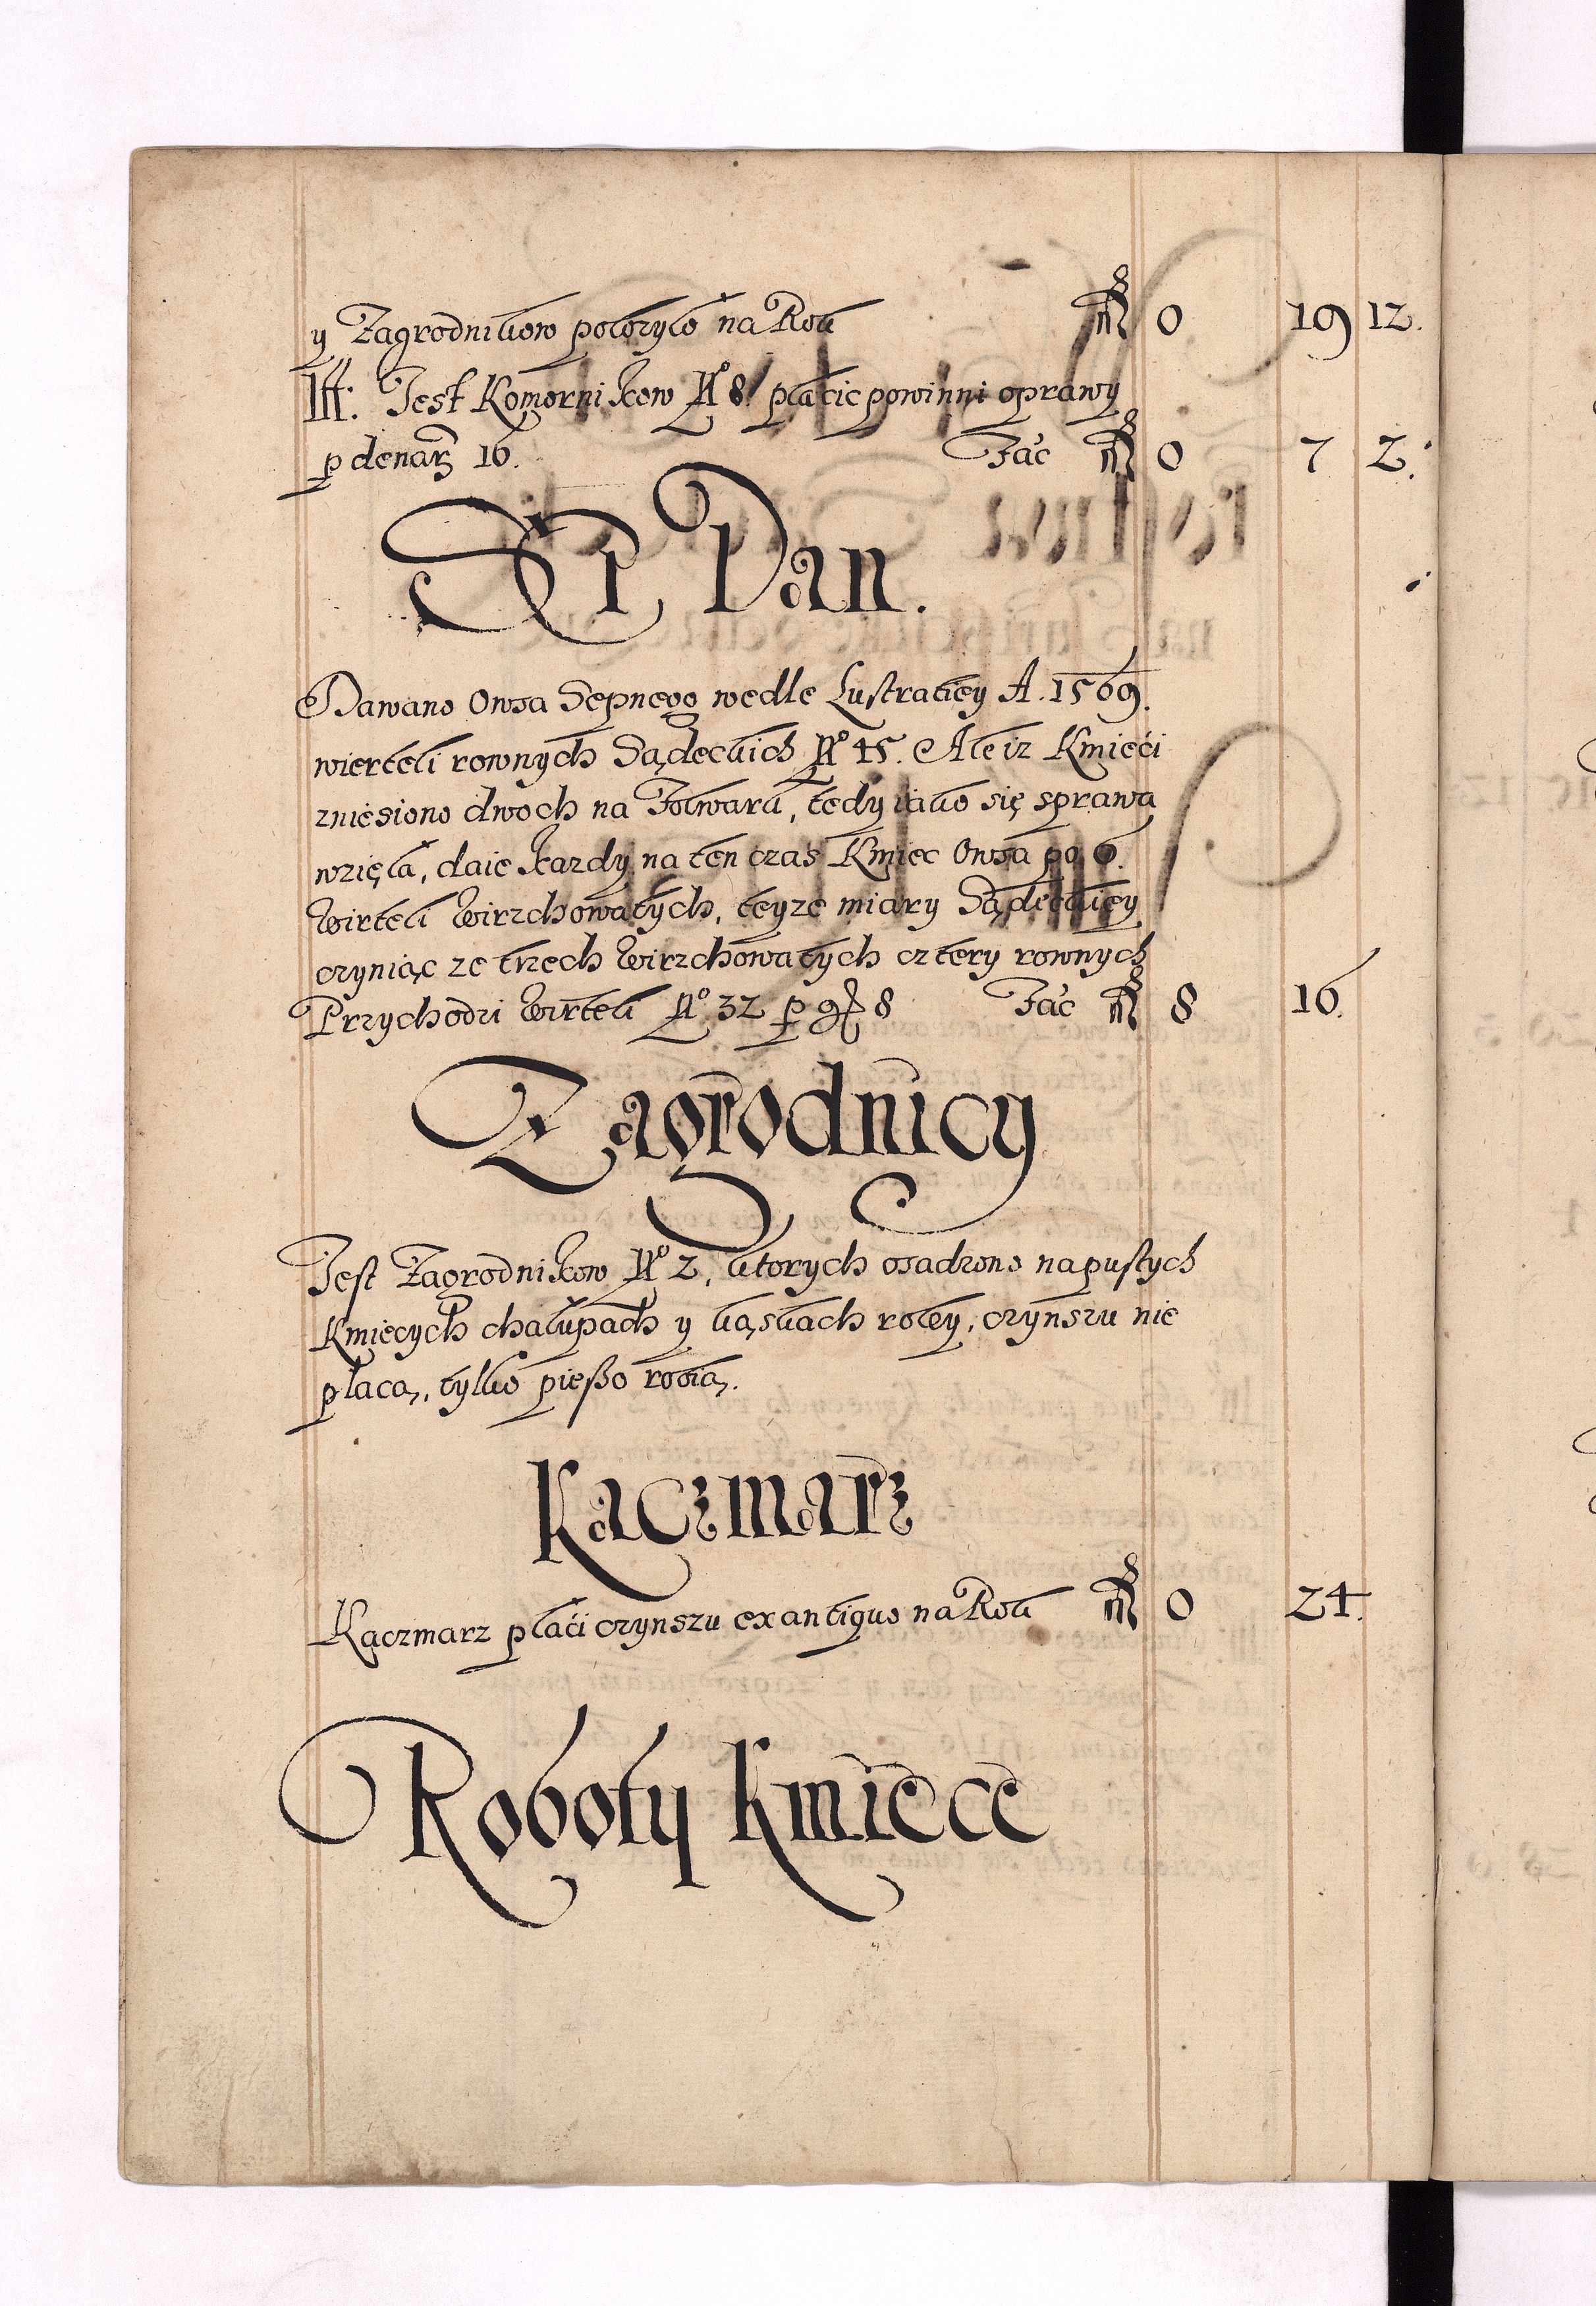 y Zagrodnikow położyło na Rok fl 0 19 12.
Itt: Jest Komornikow No 8. płacic powinni oprawy
p denarz 16. Fac fl 0 7 2.
Sep Dan.
Dawano Owsa Sepnego wedle Lustratiey A. 1569.
wierteli rownych Sądeckich No 45. Ale iz Kmieci
zniesiono dwoch na Folwark, tedy iako się sprawa
wzięła, daie kazdy na ten czas Kmiec Owsa po 6.
Wirteli Wirzchowatych, teyze miary Sądeckiey
czyniąc ze trzech Wirzchowatych cztery rownych
Przychodzi Wirteli No 32 p gr 8 Fac fl 8 16.
Zagrodnicy
Jest Zagrodnikow No 2, ktorych osadzono na pustych
Kmiecych chałupach y kąskach roley, czynszu nie
placą, tylko pieszo robią.
Kaczmarz
Kaczmarz płaci czynszu ex antiquo na Rok fl 0 24.
Roboty Kmiece